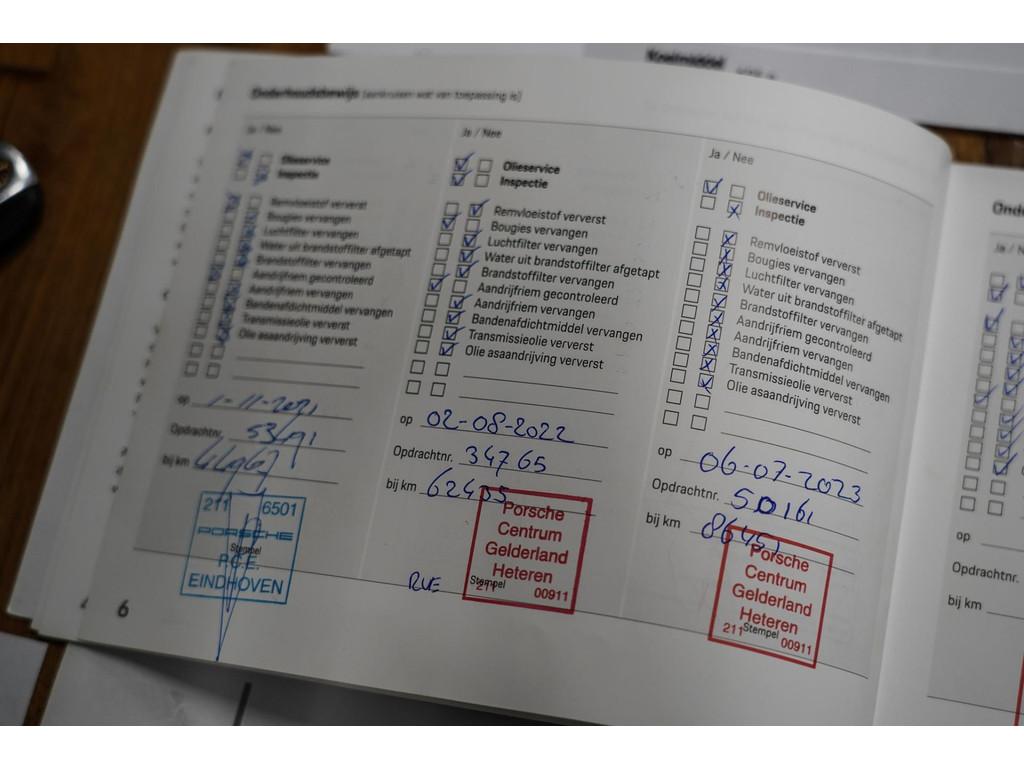 Onderhoudsbewijs (aankruisen wat van toepassing is)
Ja / Nee
Olieservice
Inspectie
Remvloeistof ververst
Bougies vervangen
Luchtfilter vervangen
Water uit brandstoffilter afgetapt
Brandstoffilter vervangen
Aandrijfriem gecontroleerd
Aandrijfriem vervangen
Bandenafdichtmiddel vervangen
Transmissieolie ververst
Olie asaandrijving ververst
op 1-11-2021
Opdrachtnr.
bij km
211 6501
PORSCHE
Stempel
P.C.E.
EINDHOVEN
6
Ja / Nee
Olieservice
Inspectie
Remvloeistof ververst
Bougies vervangen
Luchtfilter vervangen
Water uit brandstoffilter afgetapt
Brandstoffilter vervangen
Aandrijfriem gecontroleerd
Aandrijfriem vervangen
Bandenafdichtmiddel vervangen
Transmissieolie ververst
Olie asaandrijving ververst
op 02-08-2022
Opdrachtnr. 34765
bij km 62435
Porsche
Centrum
Gelderland
Heteren
Stempel
211 00911
Ja / Nee
Olieservice
Inspectie
Remvloeistof ververst
Bougies vervangen
Luchtfilter vervangen
Water uit brandstoffilter afgetapt
Brandstoffilter vervangen
Aandrijfriem gecontroleerd
Aandrijfriem vervangen
Bandenafdichtmiddel vervangen
Transmissieolie ververst
Olie asaandrijving ververst
op 06-07-2023
Opdrachtnr. 50161
bij km 86451
Porsche
Centrum
Gelderland
Heteren
211 Stempel 00911
Ja / N
op
Opdrachtnr.
bij km